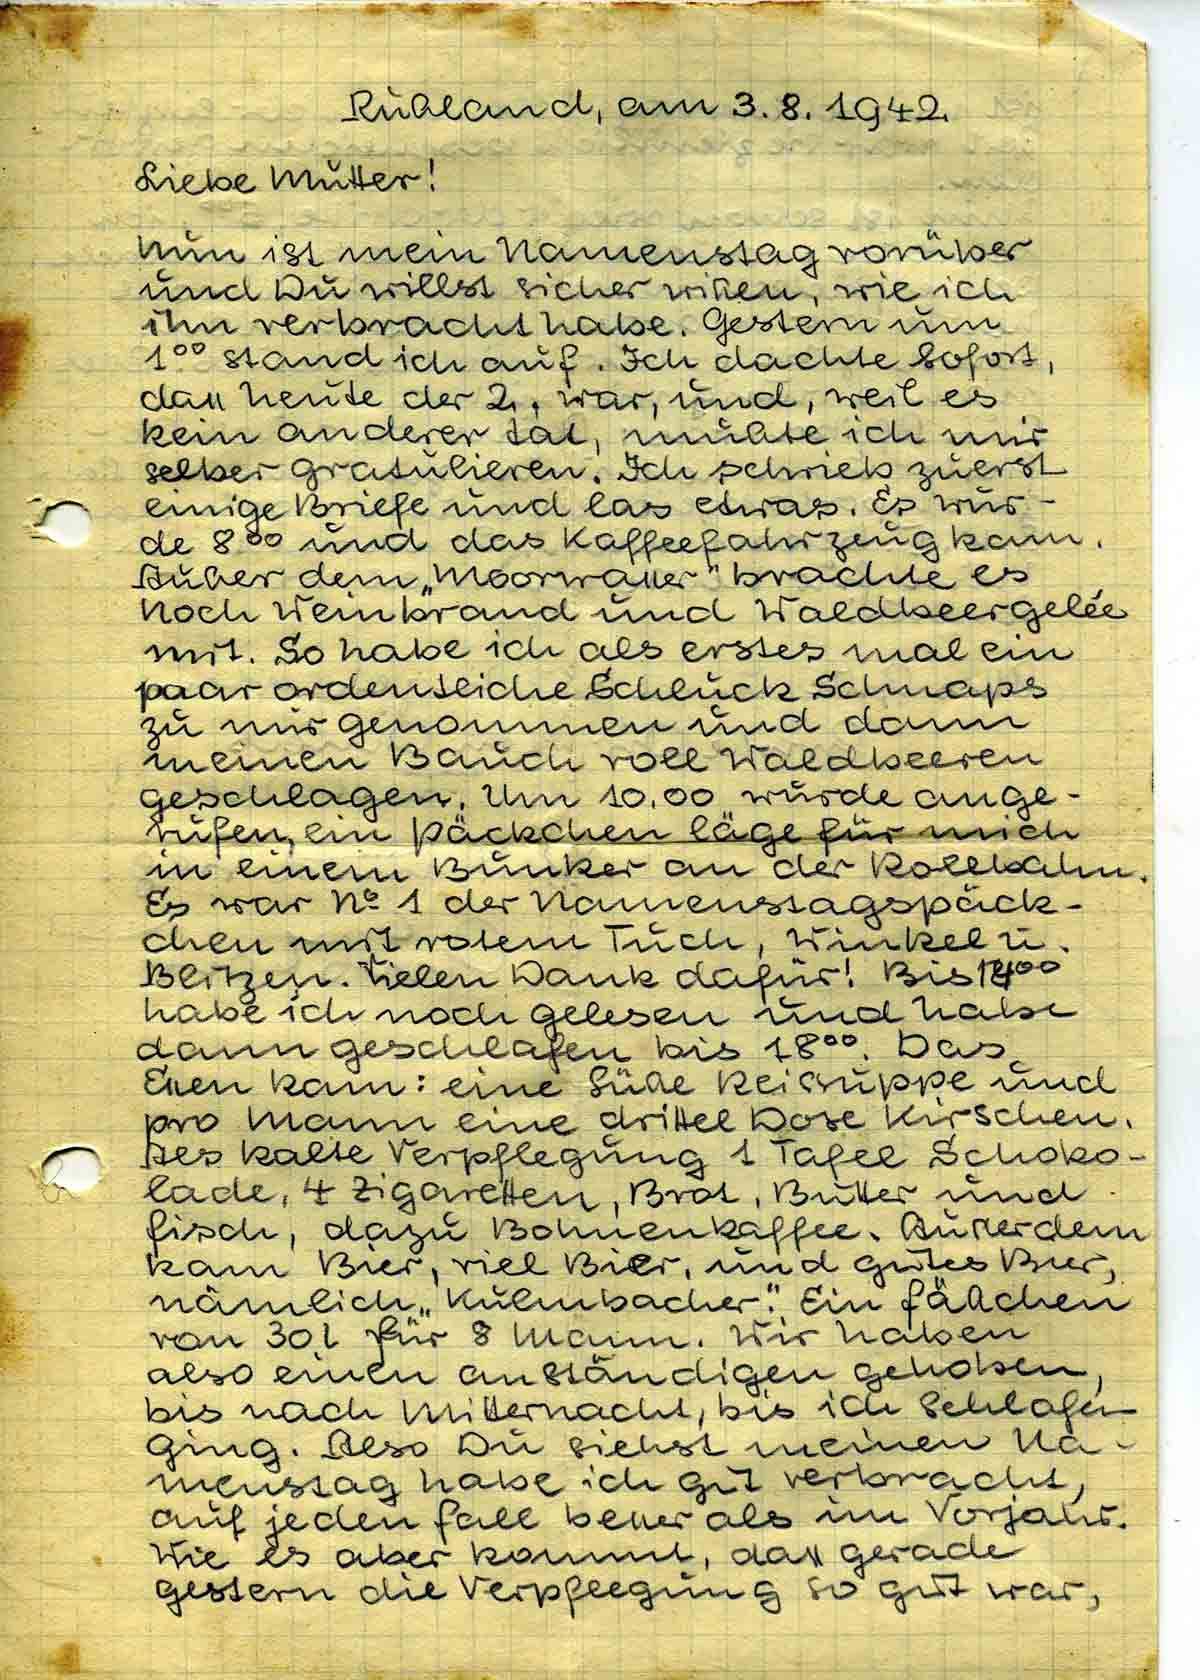 Rußland, am 3. 8. 1942.
Liebe Mutter!
Nun ist mein Namenstag vorüber
und Du willst sicher wissen, wie ich
ihn verbracht habe. Gestern um
1⁰⁰ stand ich auf. Ich dachte sofort,
dass heute der 2., war, und, weil es
kein anderer tat, mußte ich mir
selber gratulieren. Ich schrieb zuerst
einige Briefe und las etwas. Es wur-
de 8⁰⁰ und das Kaffeefahrzeug kam.
Außer dem „Moorwasser" brachte es
noch Weinbrand und Waldbeergelée
mit. So habe ich als erstes mal ein
paar ordentliche Schluck Schnaps
zu mir genommen und dann
meinen Bauch voll Waldbeeren
geschlagen. Um 10.00 wurde ange-
rufen, ein Päckchen läge für mich
in einem Bunker an der Rollbahn.
Es war No 1 der Namenstagspäck-
chen mit rotem Tuch, Winkel u.
Blitzen. Vielen Dank dafür! Bis 00
habe ich noch gelesen und habe
dann geschlafen bis 18⁰⁰. Das
Essen kam: eine süße Reissuppe und
pro Mann eine drittel Dose Kirschen.
Als kalte Verpflegung 1 Tafel Schoko-
lade, 4 Zigaretten, Brot, Butter und
Fisch, dazu Bohnenkaffee. Ausserdem
kam Bier, viel Bier, und gutes Bier,
nämlich „Kulmbacher". Ein Fäßchen
von 30 l für 8 Mann. Wir haben
also einen anständigen gehoben,
bis nach Mitternacht, bis ich schlafen
ging. Also Du siehst meinen Na-
menstag habe ich gut verbracht,
auf jeden Fall besser als im Vorjahr.
Wie es aber kommt, dass gerade
gestern die Verpflegung so gut war,